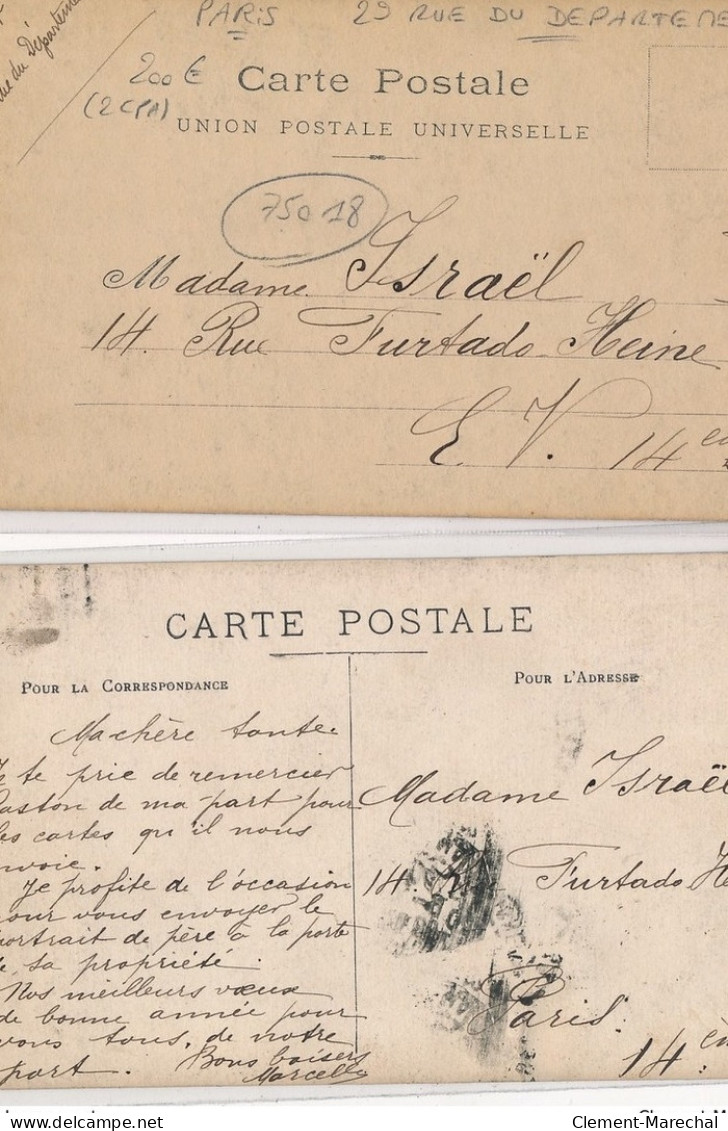 PARIS 29 RUE DU DEPARTEME
rue du Départeme
200 €
(2 CPA)
Carte Postale
UNION POSTALE UNIVERSELLE
75018
Madame Israël
14. Rue Furtado Heine
E. V. 14e
CARTE POSTALE
POUR LA CORRESPONDANCE
POUR L'ADRESSE
Ma chère tante
Je te prie de remercier
Gaston de ma part pour
les cartes qu'il nous
nvoie.
Je profite de l'occasion
our vous envoyer le
ortrait de père à la porte
de sa propriété.
Nos meilleurs vœux
de bonne année pour
vous tous, de notre
part. Bons baisers
Marcelle
Madame Israël
14. Furtado He
Paris.
14.è
Clement-Marechal